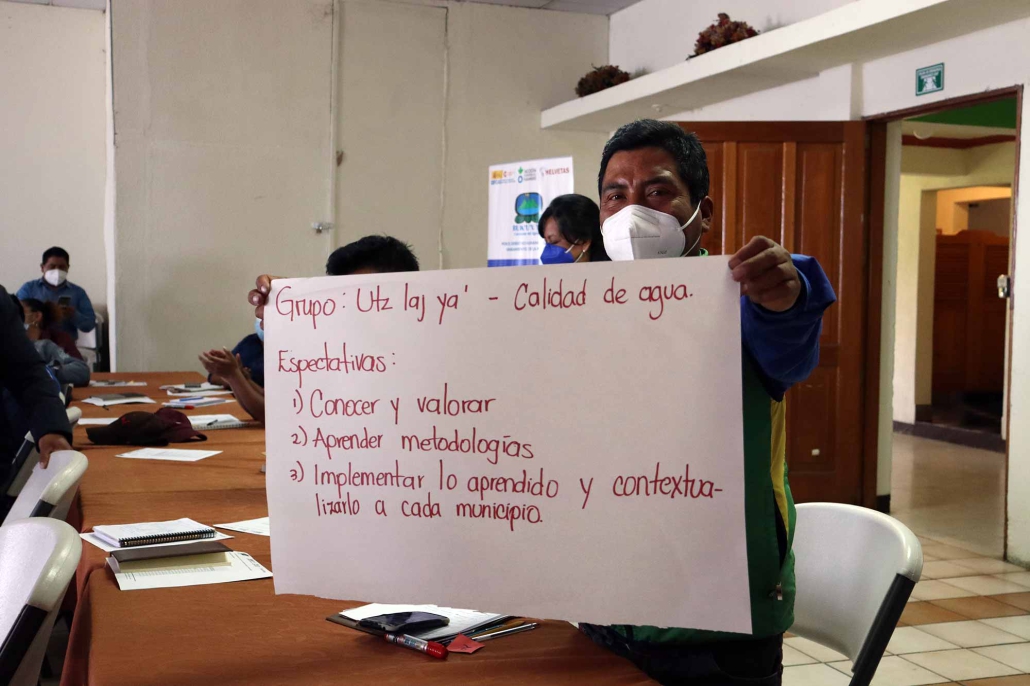 HELVETAS
Grupo: Utz laj ya' - Calidad de agua.
Espectativas:
1) Conocer y valorar
2) Aprender metodologías
3) Implementar lo aprendido y contextua-
lizarlo a cada município.